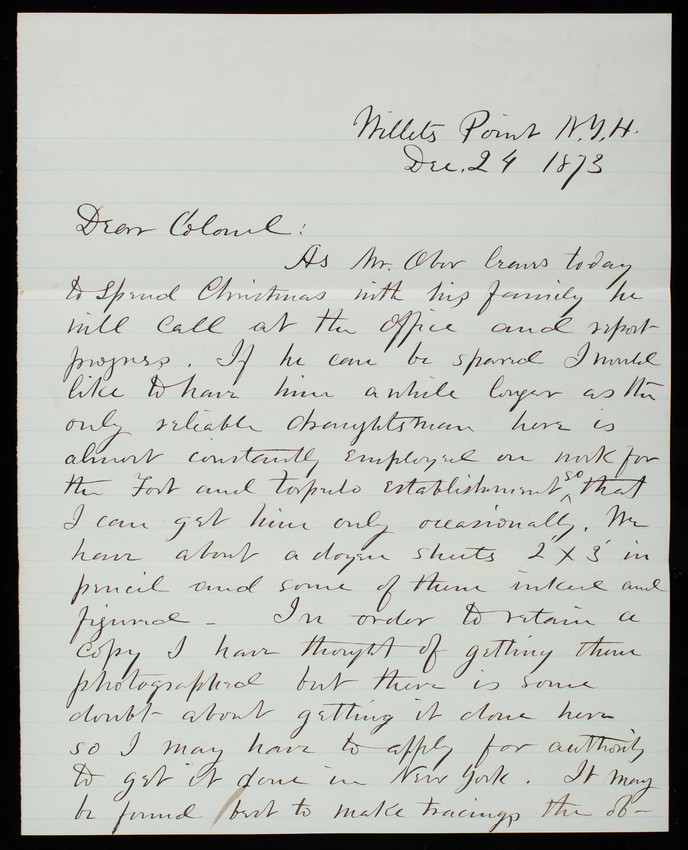 Willets Point N.Y.H.
Dec. 24 1873
Dear Colonel:
As Mr. Ober leaves today
to spend Christmas with his family he
will call at the office and report
progress. If he can be spared I would
like to have him awhile longer as the
only reliable draughtsman here is
almost constantly employed on work for
the Fort and torpedo establishment so that
I can get him only occasionally. We
have about a dozen sheets 2' x 3' in
pencil and some of them inked and
figured - In order to retain a
copy I have thought of getting them
photographed but there is some
doubt about getting it done here
so I may have to apply for authority
to get it done in New York. It may
be found best to make tracings the ob-